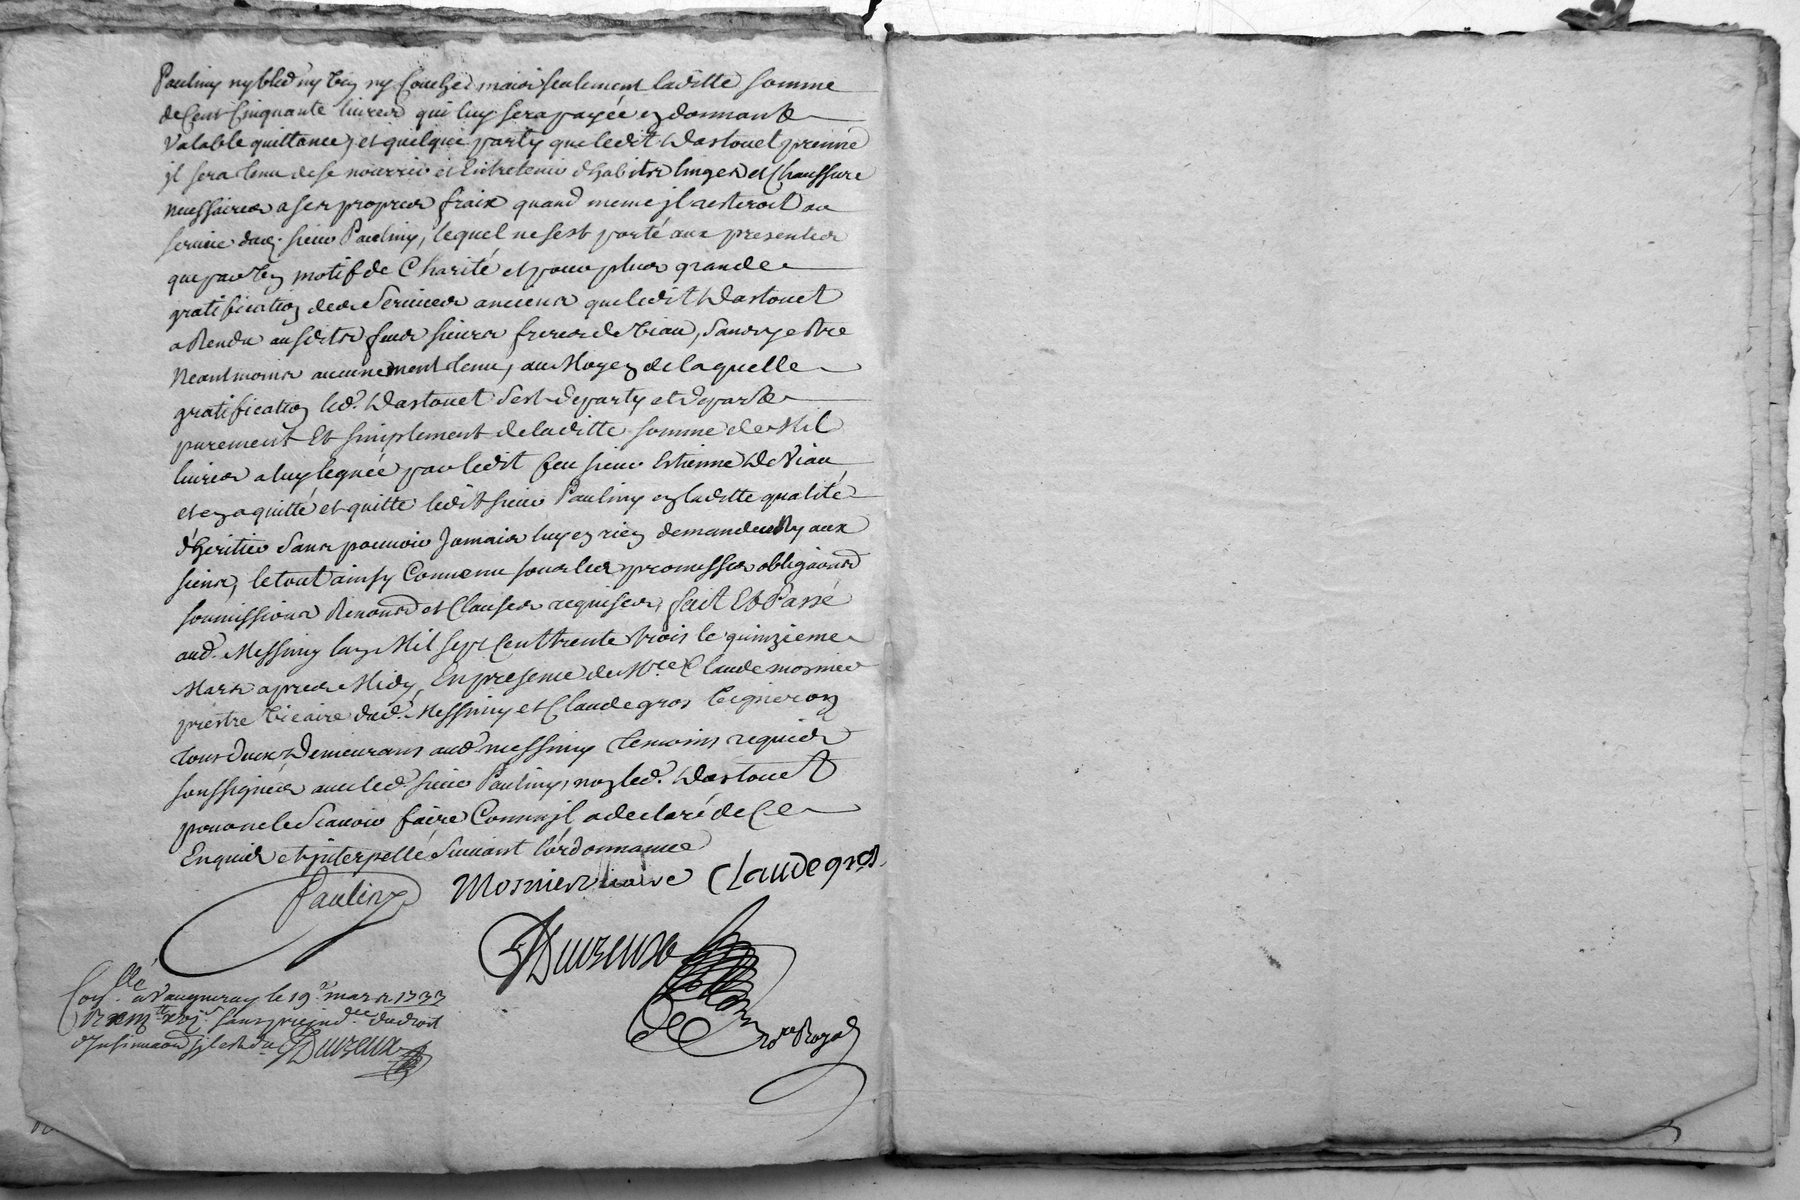 Pauliny ny bled ny vin ny couché mais seulement laditte somme
de Cent Cinquante livres qui luy sera payée en donnant
valable quittance, et quelque party que ledit Dastouet prenne
il sera tenu de se nourrir et Entretenir d'habits linges et Chaussure
necessaires a ses propres fraix quand meme il resteroit au
service dud. sieur Pauliny, lequel ne sest porté aux presentes
que par un motif de Charité et pour plus grande
gratification des services anciens que ledit Dastouet
a Rendu ausdits feus sieurs freres de Viau, sans y estre
Neantmoins aucunement tenu, au Moyen de laquelle
gratification led. Dastouet s'est departy et depart
purement Et simplement de laditte somme de Mil
livres a luy leguée par ledit feu sieur Estienne De Viau
et en a quitté et quitte ledit sieur Pauliny en laditte qualité
d'heritier sans pouvoir Jamais luy en rien demander Ny aux
siens, le tout ainsy Convenu sous les promesses obligaons
soumissions Renonons et Clauses requises, fait Et Passé
aud. Messimy lan Mil sept Cent trente trois le quinzieme
Mars apres Midy, En presence de Mre Claude mosnier
prestre Vicaire dud. Messimy et Claude gros vigneron
tous deux Demeurans aud. messimy temoins requis
soussignés avec led. sieur Pauliny, non led. Dastouet
pour ne le Scavoir faire Comme il a declaré de Ce
Enquis et interpellé Suivant l'ordonnance
Pauliny Mosnier vicaire CLaude gros
Duvzeux
nore Royal
Conllé a Vaugneray le 19e mars 1733
sans prejud.ce du droit
d'Insinuaon s'il est du Duvzeux